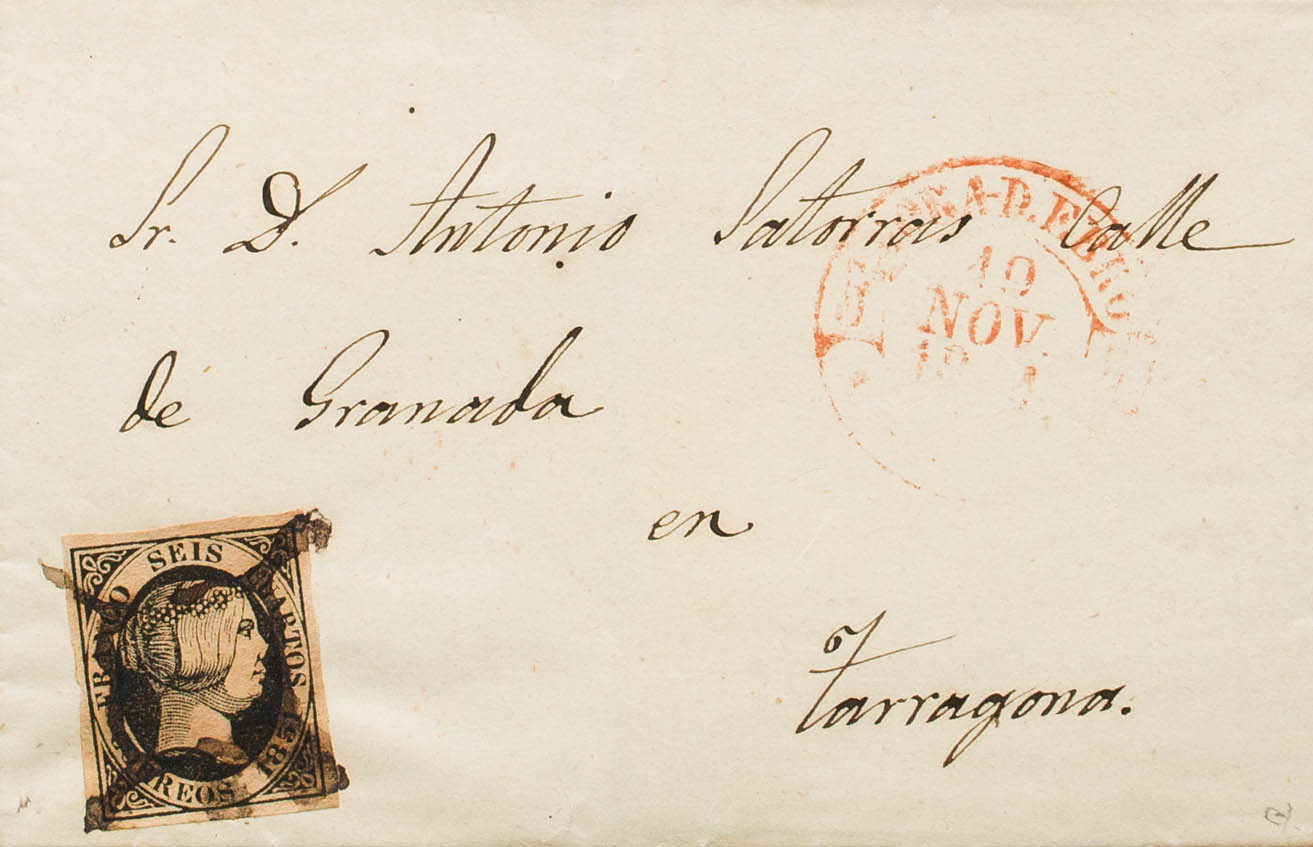 Sr. D. Antonio Satorras Calle
de Granada
en
Tarragona.
10
NOV
FRANCO SEIS CUARTOS
CORREOS 1851